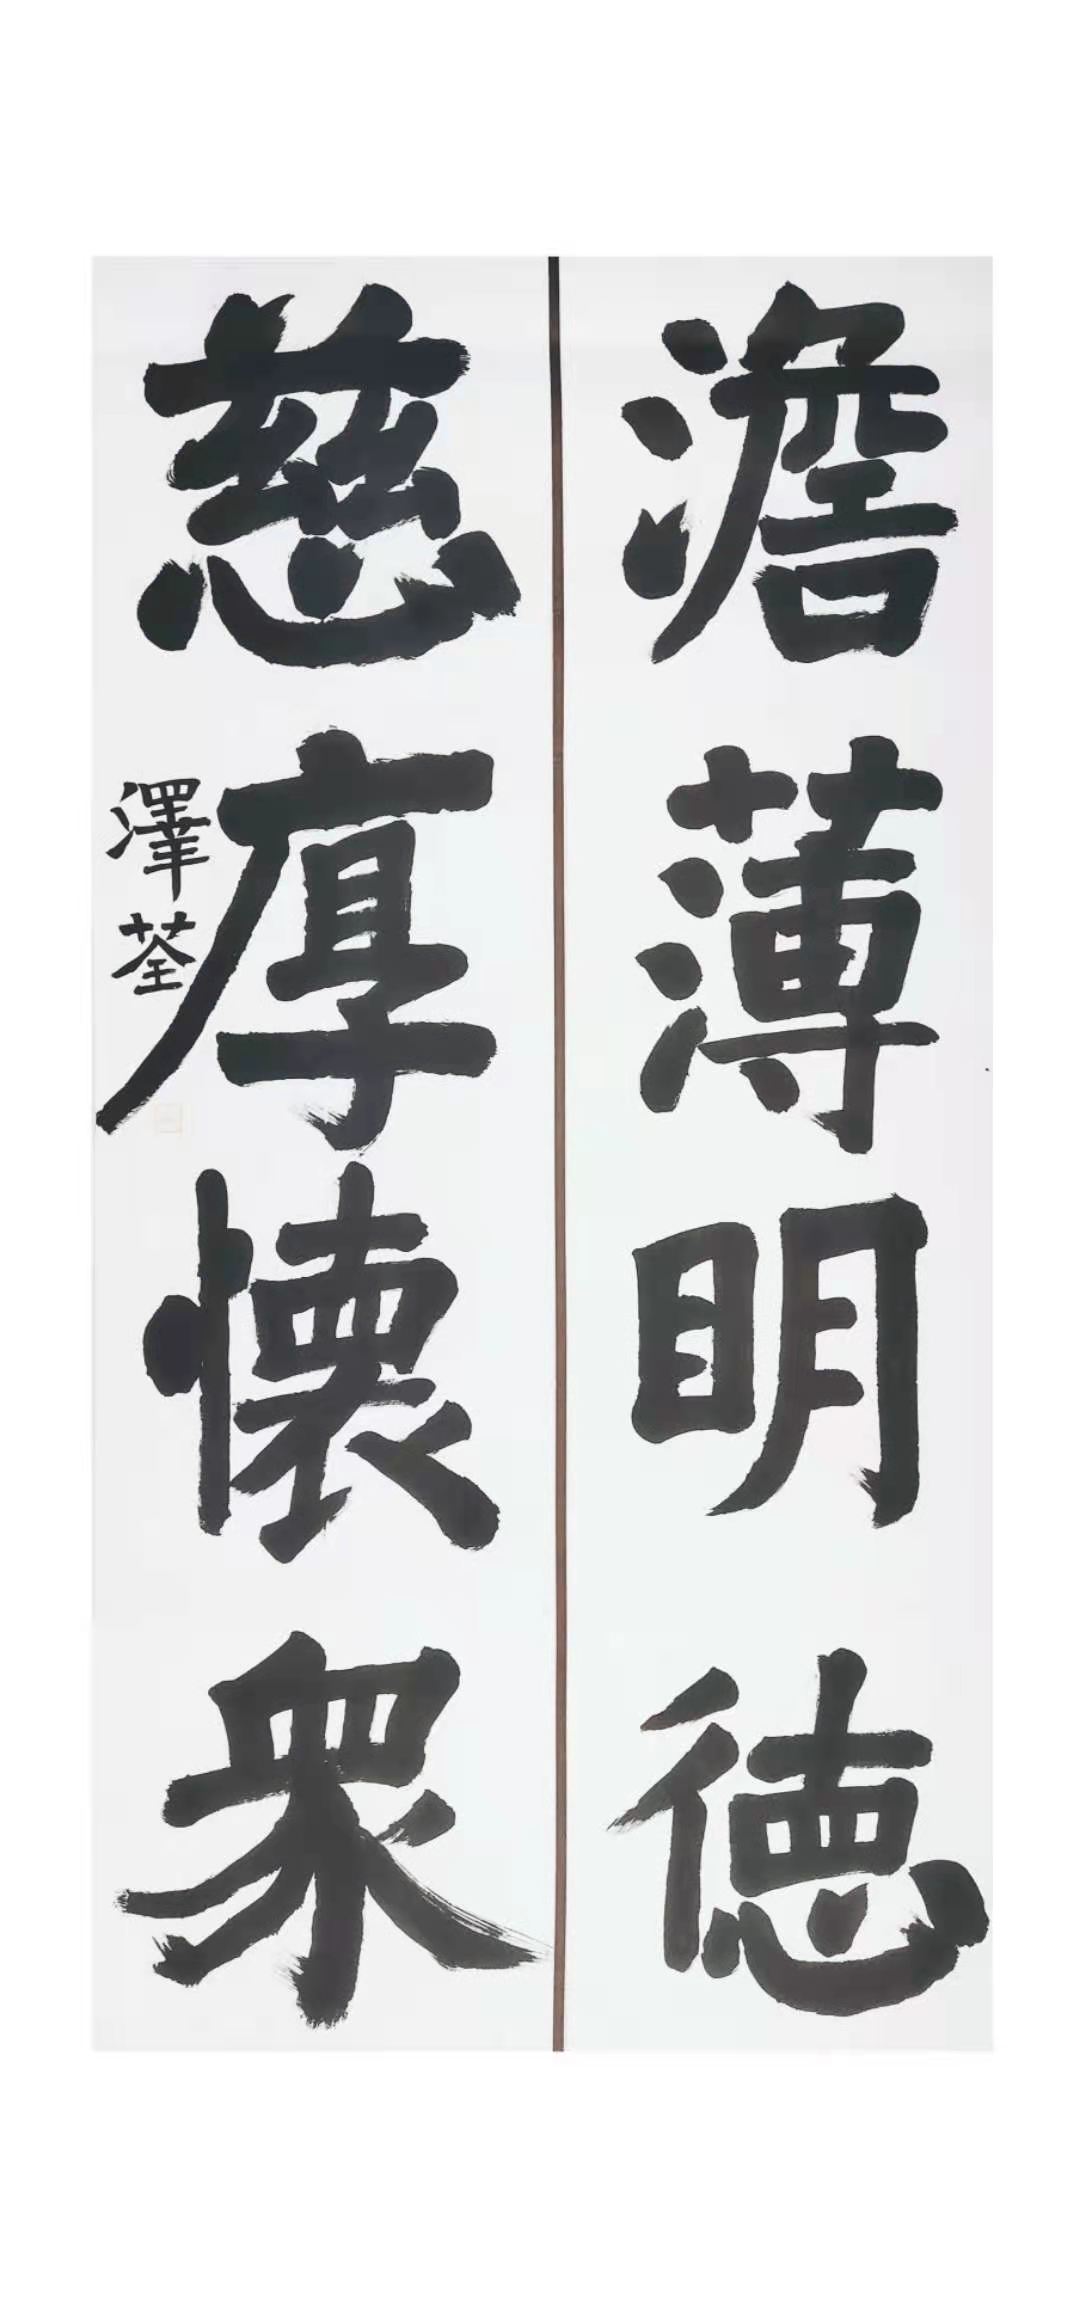 澹薄明德
慈厚懷眾
澤荃